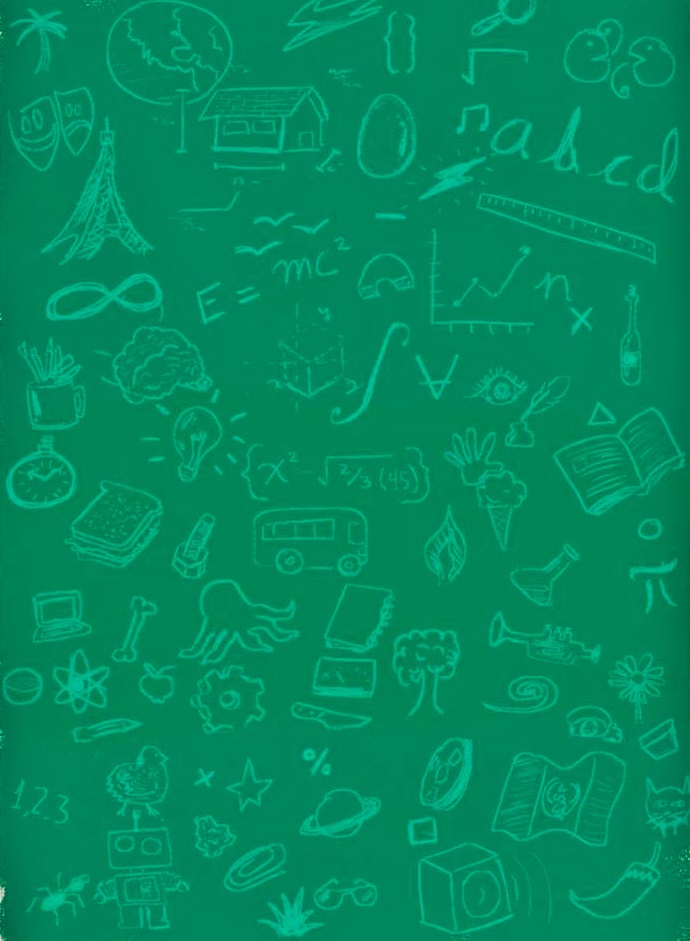 a b c d
E = mc²
n x
x² - √2/3 (45)
π
%
1,2,3
$